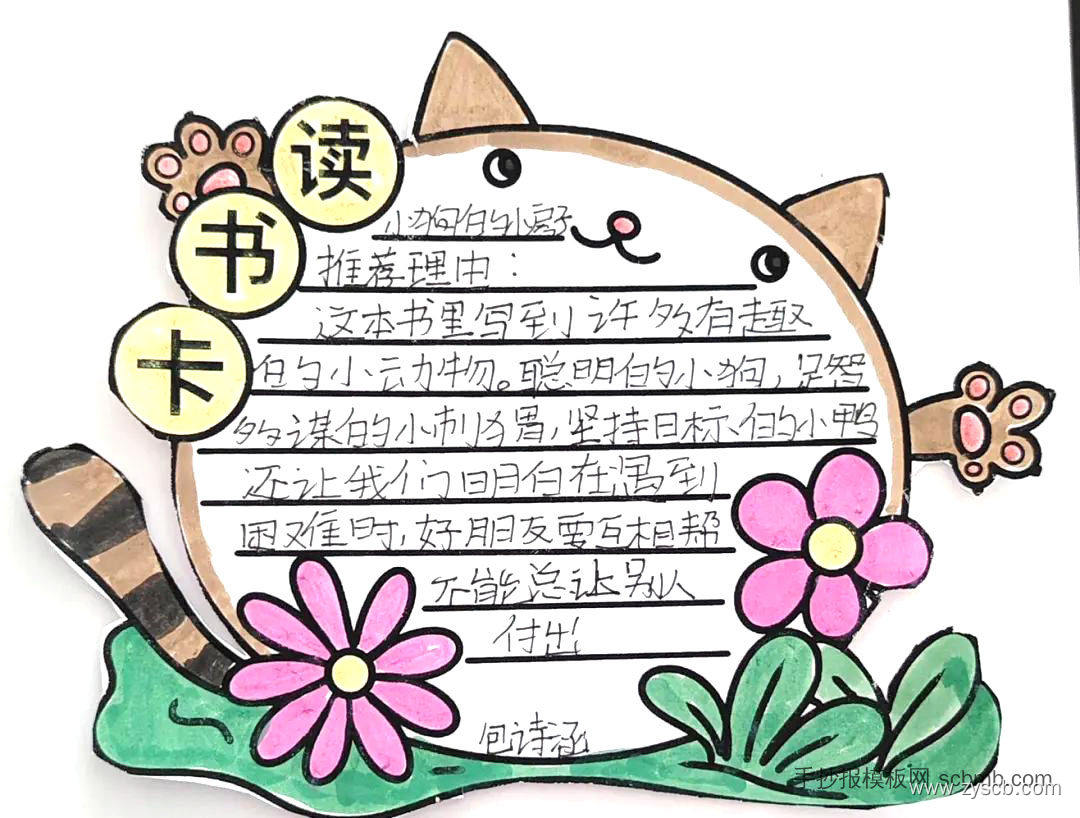 读书卡
小狗的小房子
推荐理由：
这本书里写到许多有趣
的小动物。聪明的小狗，足智
多谋的小刺猬，坚持目标的小鸭
还让我们明白在遇到
困难时，好朋友要互相帮
不能总让别人
付出
包诗涵
手抄报模板网 scbmb.com
www.zyscb.com